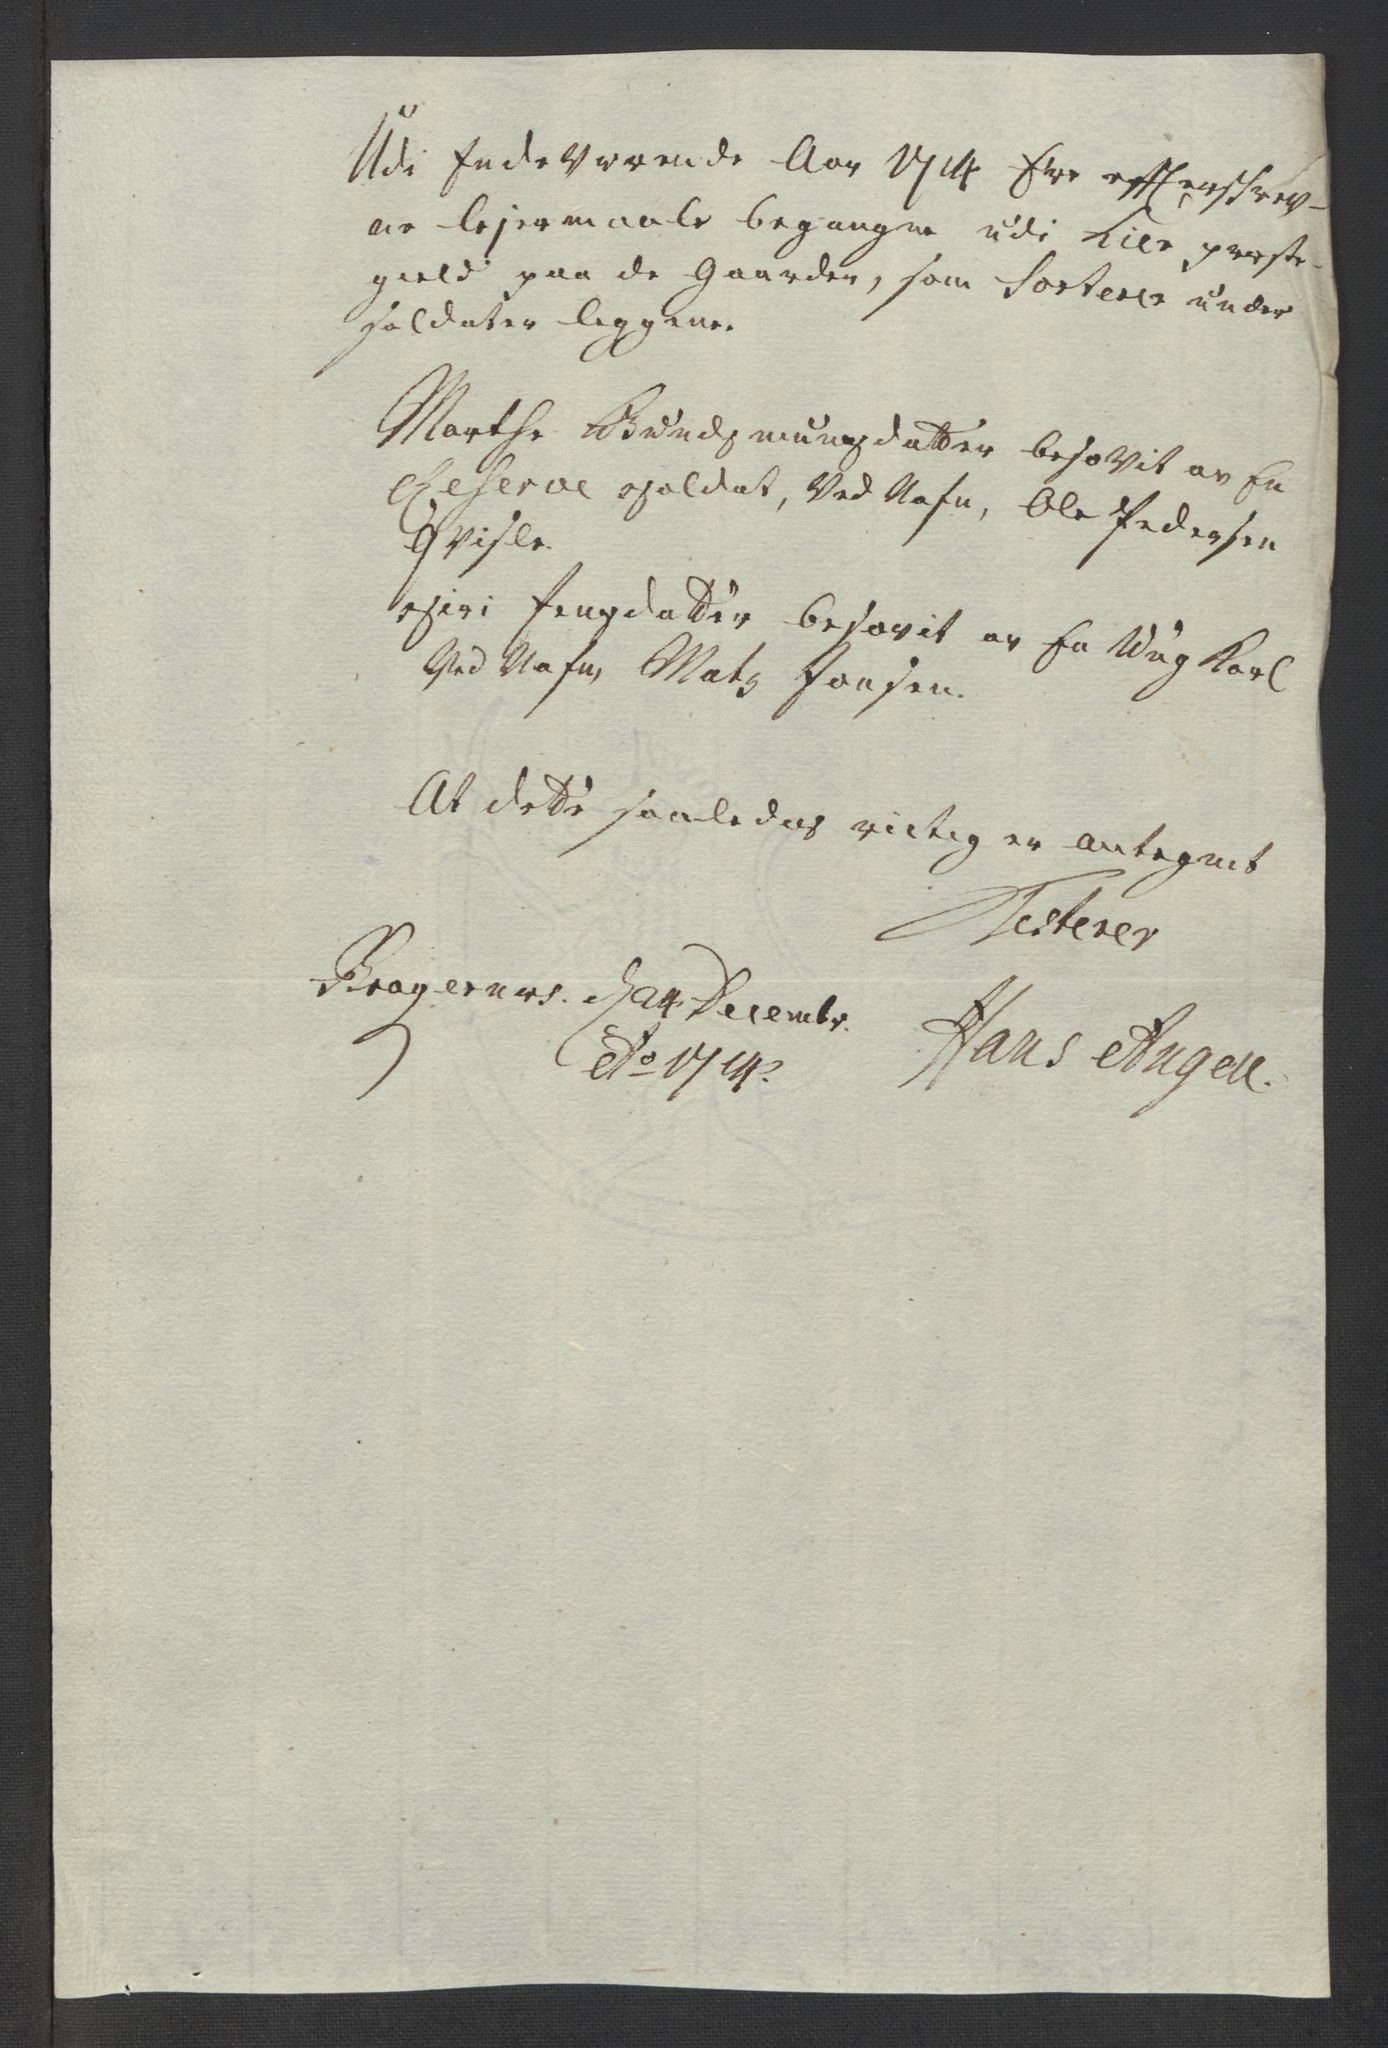 Udi Indeverende Aar 1714 Ere effterschrev-
ne lejermaale begangne udi Lier præste-
gield paa de Gaarder, som Sorterer under
soldater leggene.
Marthe Gudsmunsdatter besovit av En
Reserve soldat, Ved Nafn, Ole Pedersen
Qvisle.
Siri Jensdatter besovit av En Ung Karl
Ved Nafn, Mats Jonsen.
At dette saaledes rictig er antegnet
Testerer
Bragernes. d. 24 Decembr.
Ao 1714.
Hans Angell.